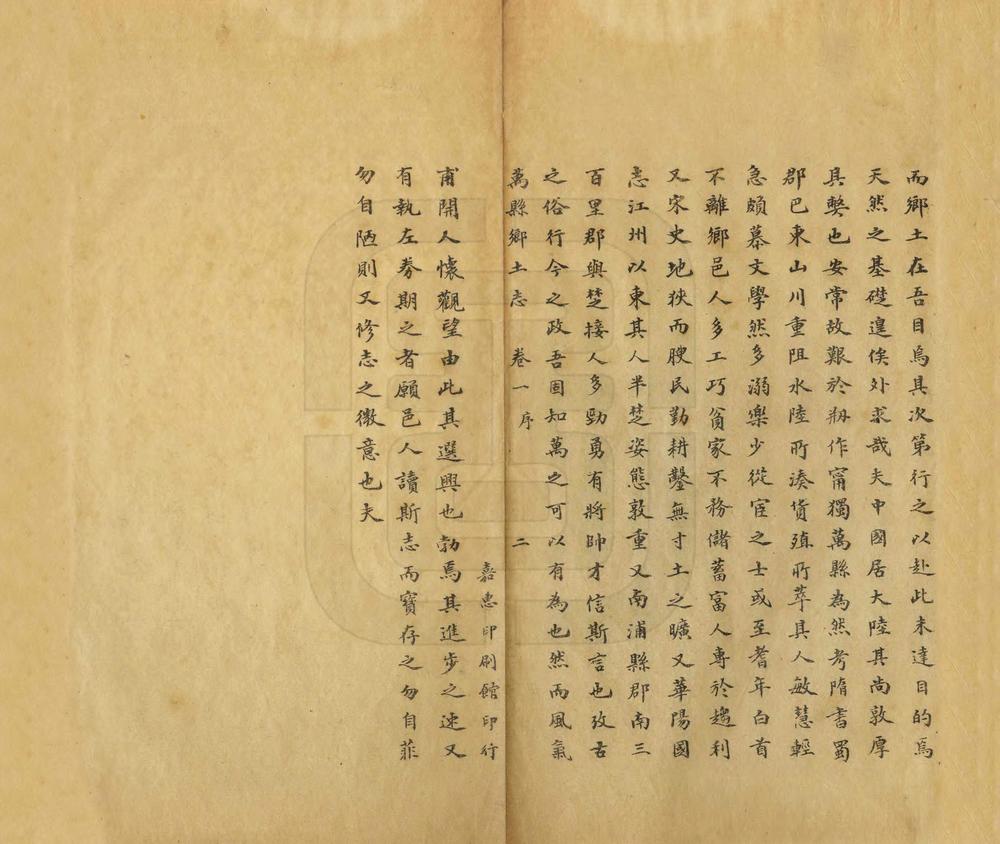 而鄉土在吾目焉其次第行之以赴此未達目的焉
天然之基礎遑俟外求哉夫中國居大陸其尚敦厚
具弊也安常故艱於剏作甯獨萬縣為然考隋書蜀
郡巴東山川重阻水陸所湊貨殖所萃具人敏慧輕
急頗慕文學然多溺樂少從宦之士或至耆年白首
不離鄉邑人多工巧貧家不務儲蓄富人專於趨利
又宋史地狹而腴民勤耕鑿無寸土之曠又華陽國
志江州以東其人半楚姿態敦重又南浦縣郡南三
百里郡與楚接人多勁勇有將帥才信斯言也攷古
之俗行今之政吾固知萬之可以有為也然而風氣
萬縣鄉土志 卷一 序 二
嘉惠印刷館印行
甫開人懷觀望由此其選興也勃焉其進步之速又
有執左券期之者願邑人讀斯志而寶存之勿自菲
勿自陋則又修志之微意也夫